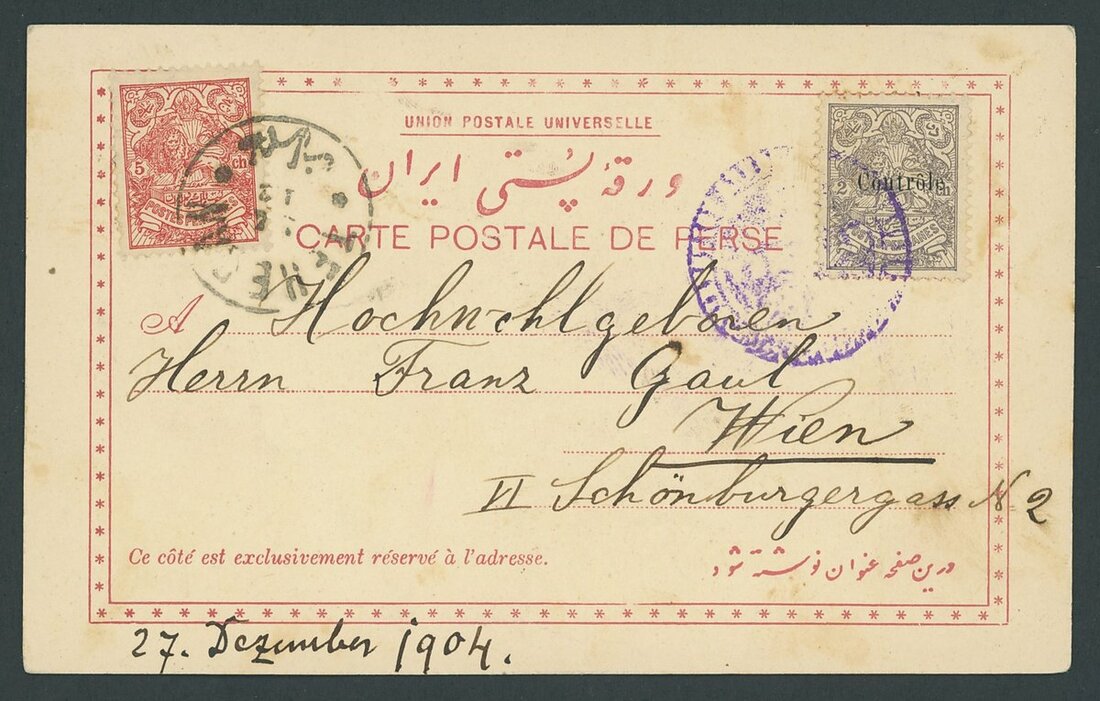 UNION POSTALE UNIVERSELLE
ورقهٔ پُستی ایران
CARTE POSTALE DE PERSE
5 ch
POSTES PERSANES
2 ch
Contrôle
A Hochwohlgeboren
Herrn Franz Gaul
Wien
VI Schönburgergass N 2
Ce côté est exclusivement réservé à l'adresse.
درین صفحه عنوان نوشته شود
27. Dezember 1904.